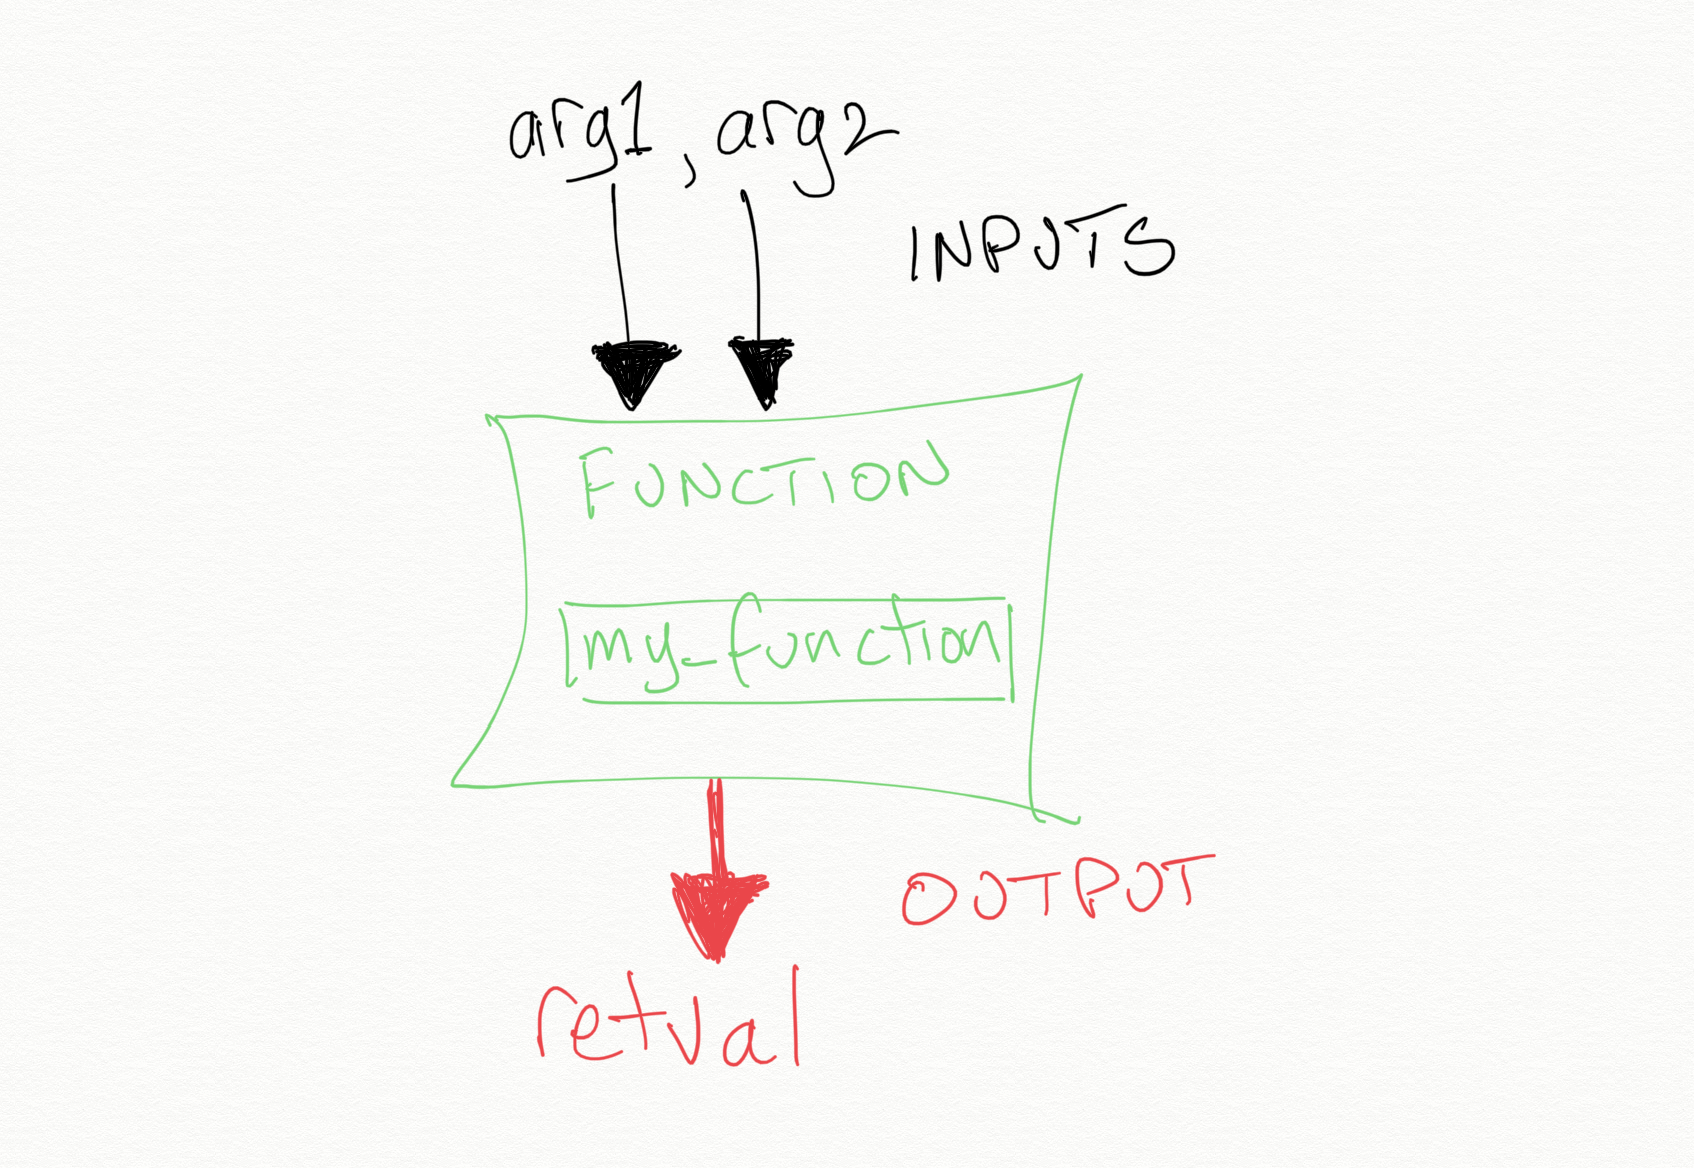 arg1, arg2
INPUTS
FUNCTION
my_function
OUTPUT
retval